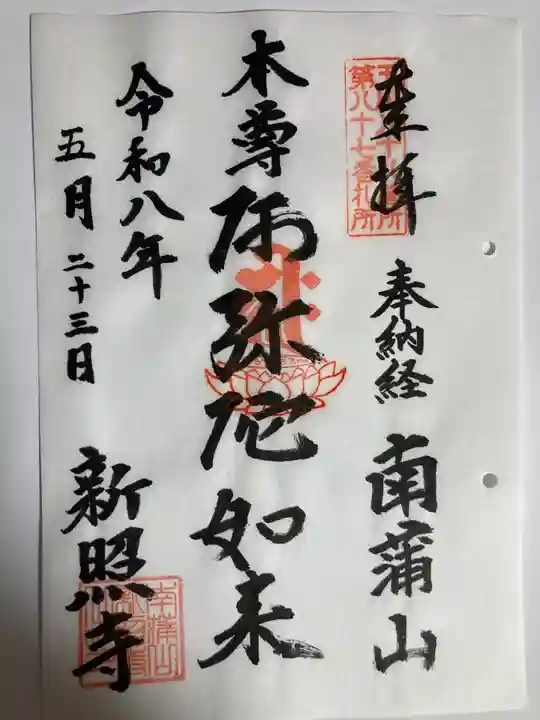 奉拝
第八十七番札所
奉納経 南蒲山
本尊 阿弥陀如来
令和八年
五月二十三日
新照寺